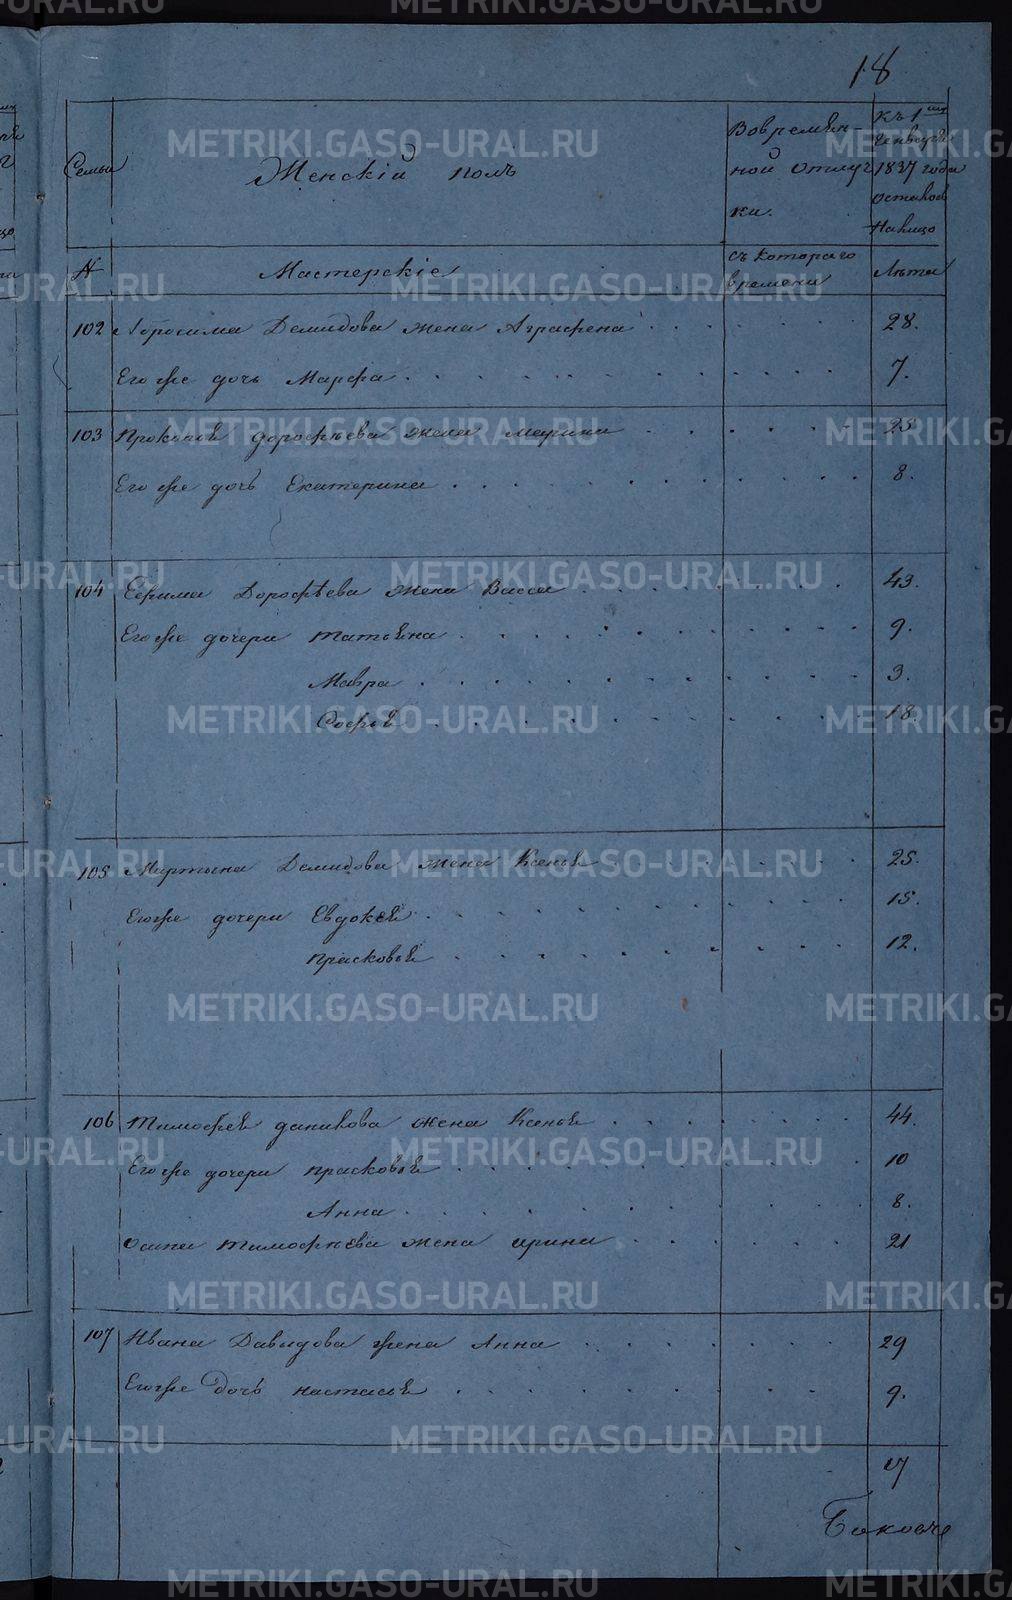 18
Семьи
Женскій полъ
Вовремен-
ной отлуч
ки.
Къ 1му
Генваря
1837 года
осталось
налицо
№
Мастерскіе
съ котораго
времени
Лѣта
102 Абросима Демидова жена Аграфена 28.
Его же дочь Марфа 7.
103 Прокопья дорофѣева жена марина 25
Его же дочь Екатерина 8.
104 Ефима Дорофѣева жена Васса 43.
Его же дочери татьяна 9.
Мавра 3.
Софья 18.
105 Мартына Демидова жена Ксенья 25.
Его же дочери Евдокея 15.
прасковья 12.
106 тимофея даникова жена Ксенья 44.
Его же дочери прасковья 10
Анна 8.
осипа тимофѣева жена ирина 21
107 Ивана Давыдова жена Анна 29
Его же дочь настасья 9.
17
METRIKI.GASO-URAL.RU